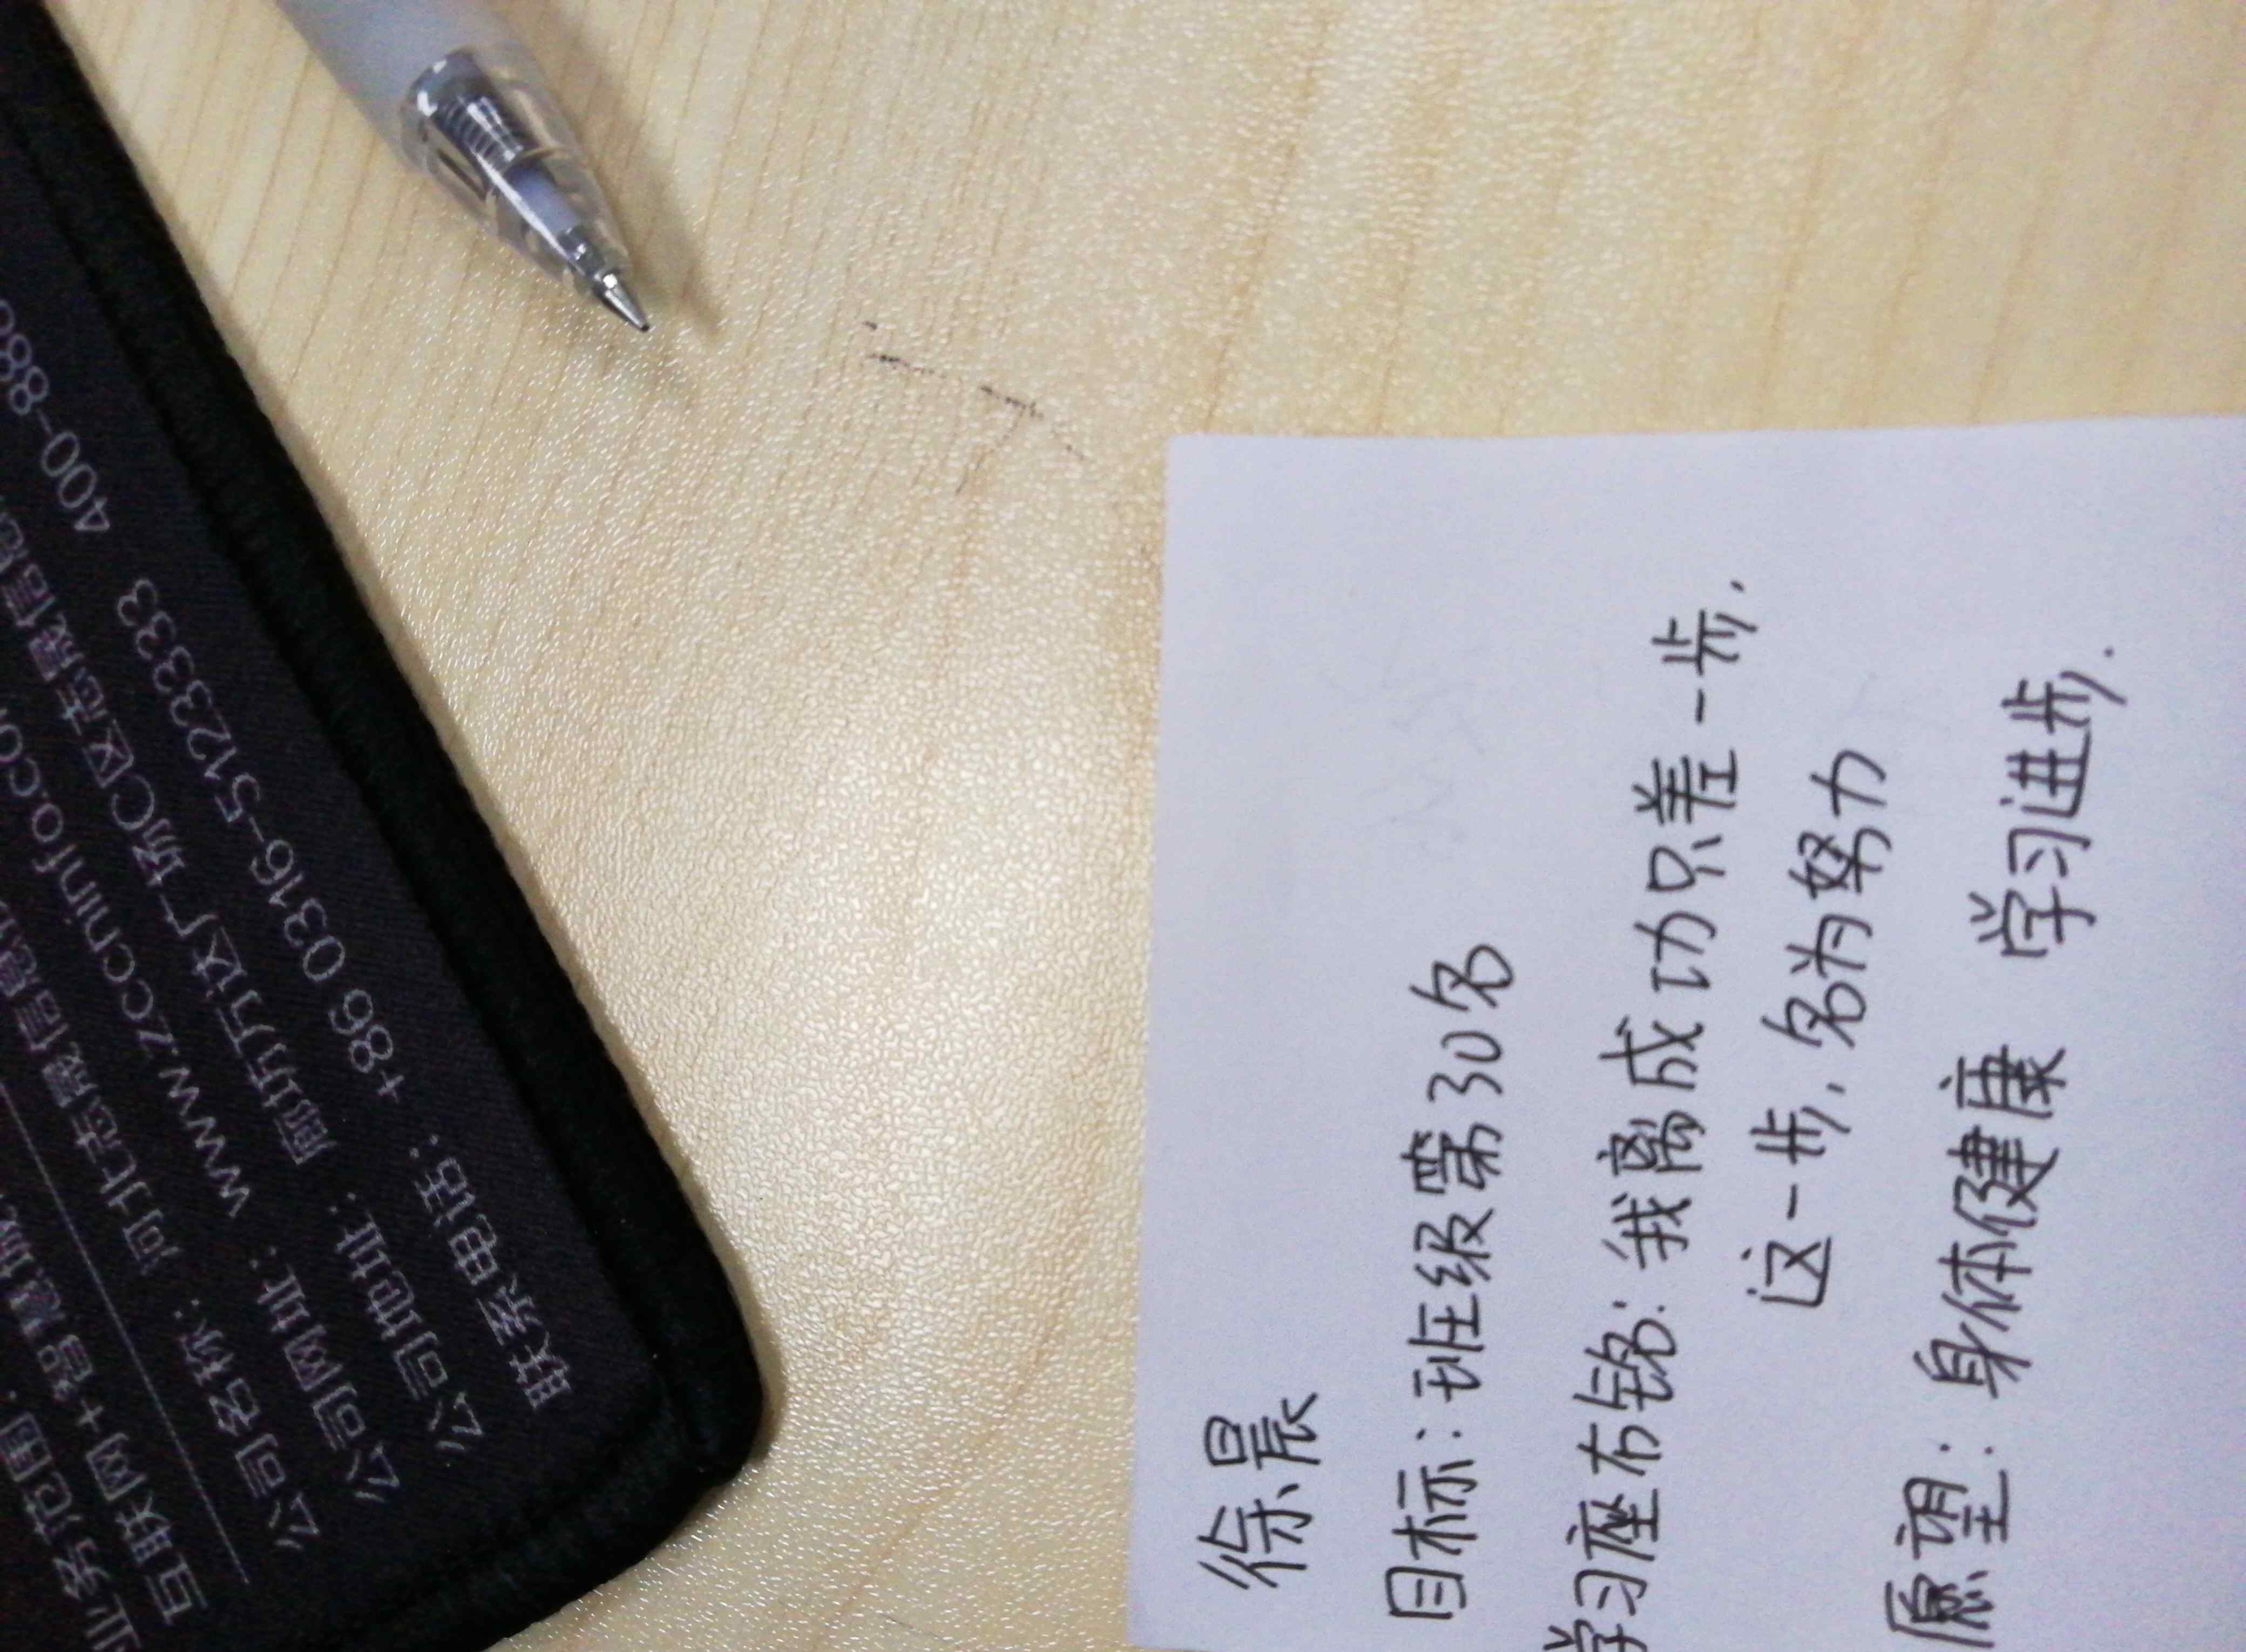 业务范围:
互联网+智慧
公司名称: 河北志晟信息
公司网址: www.zccninfo.co
公司地址: 廊坊万达广场C区志晟信息
联系电话: +86 0316-5123333 400-888
徐晨
目标:班级第30名
学习座布铭:我离成功只差一步.
这一步,名为努力
愿望:身体健康 学习进步.